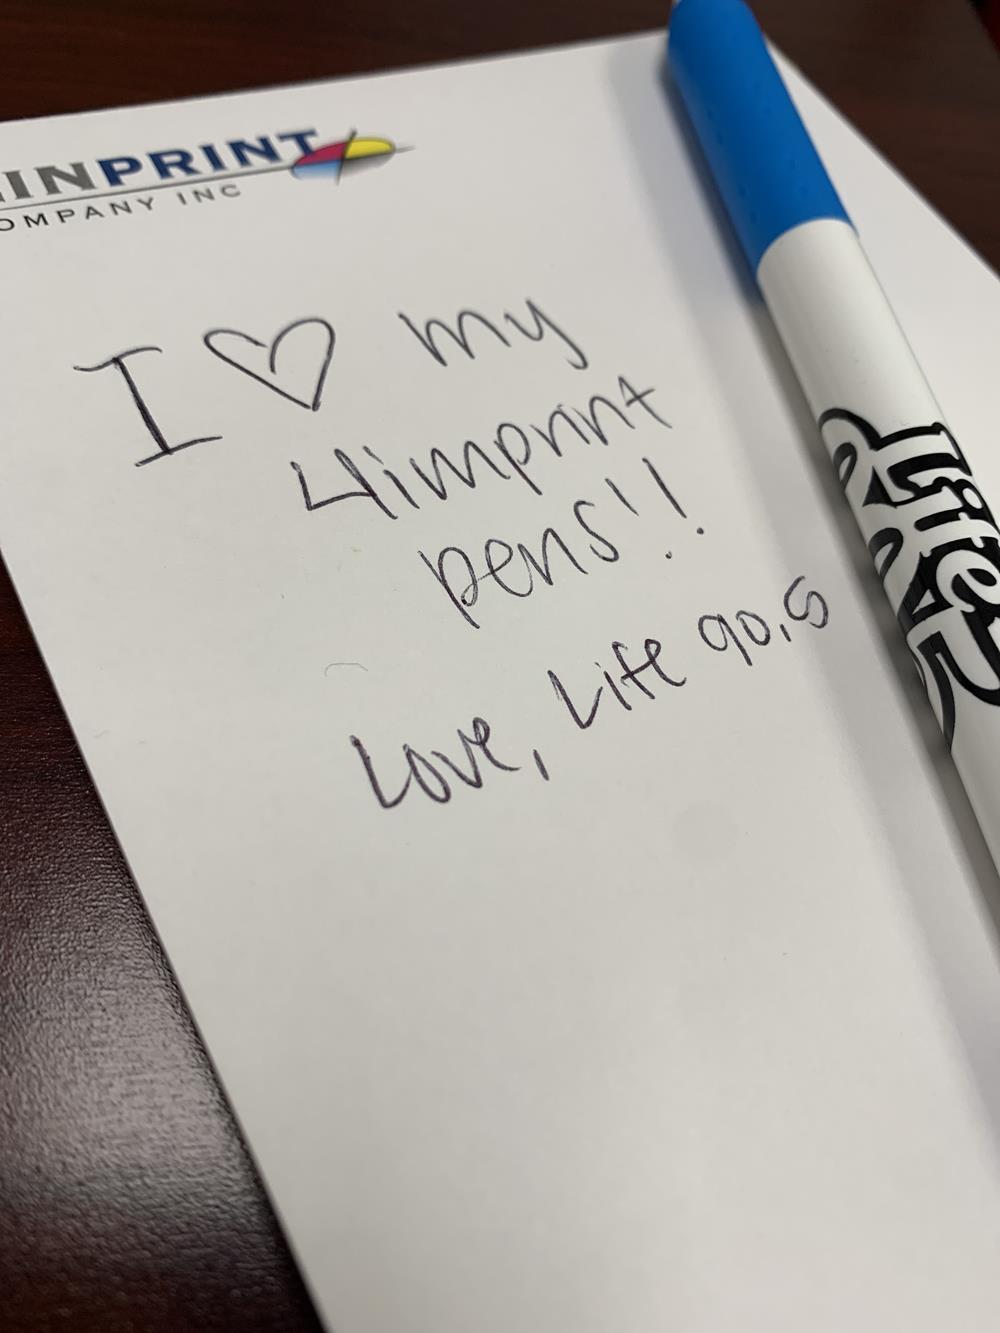 INPRINT
OMPANY INC
I ♡ my
4imprint
pens!!
Love, Life 90.5
Life